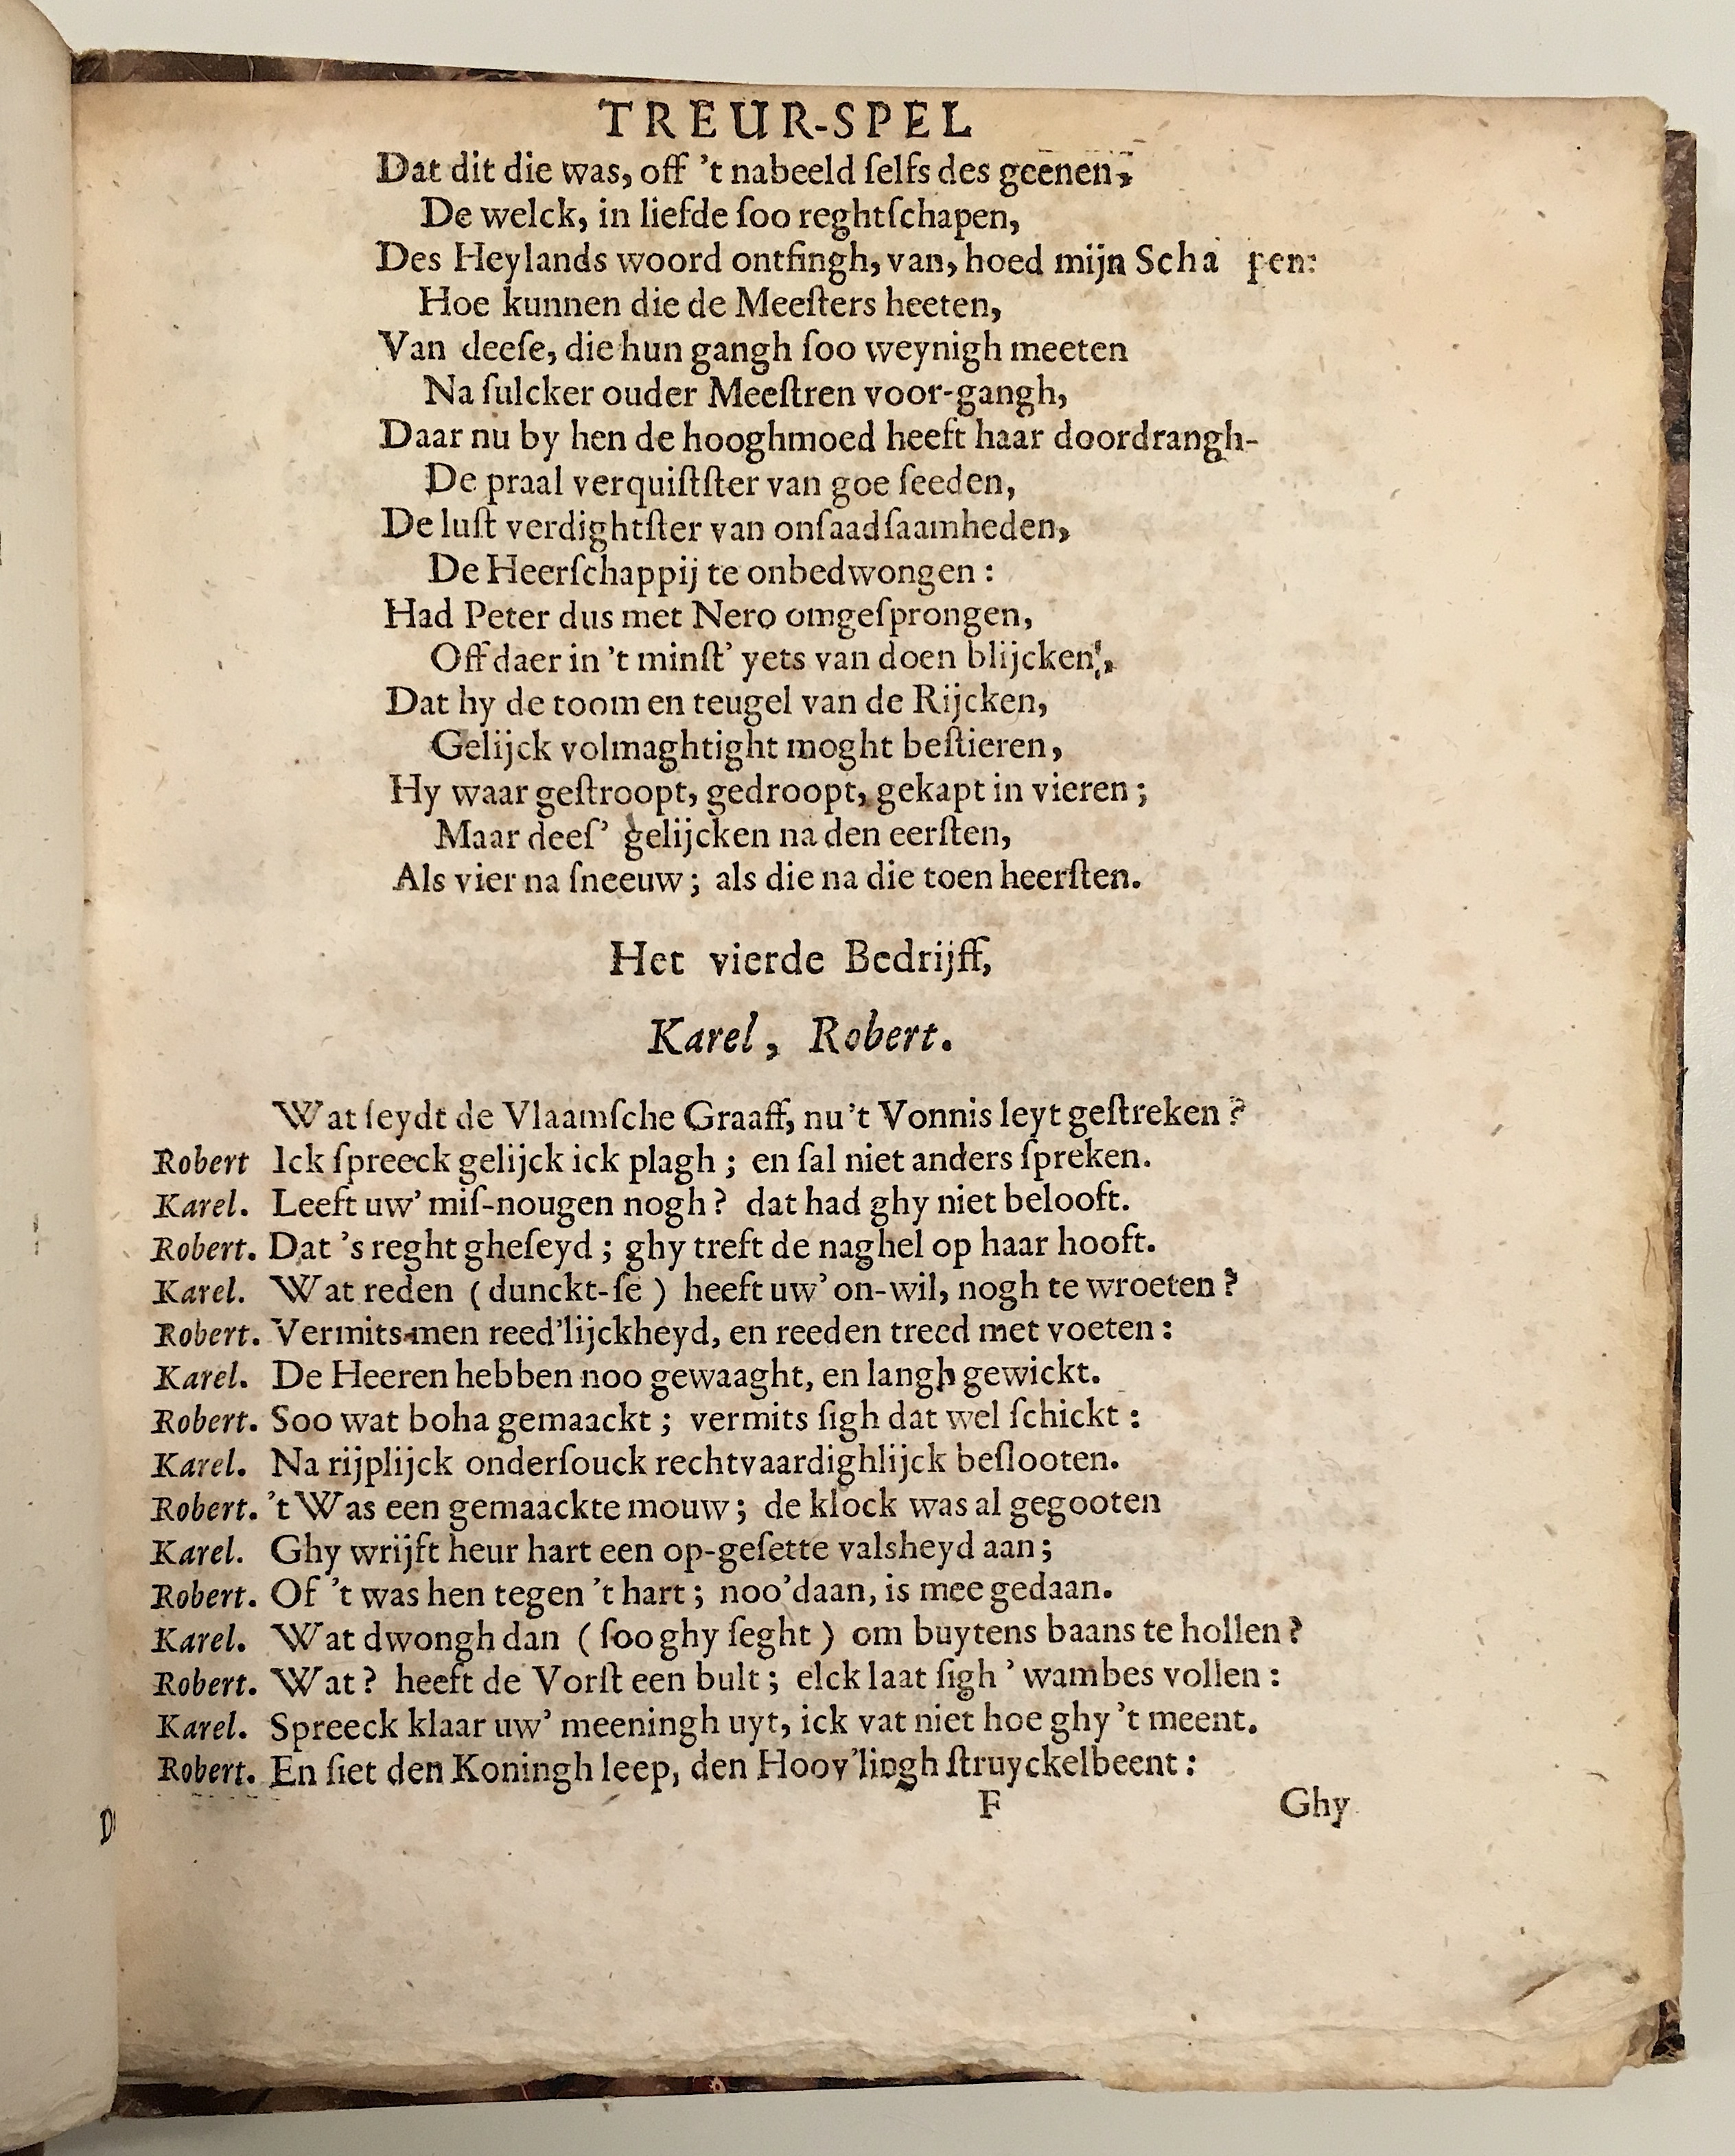 TREUR-SPEL
Dat dit die was, off 't nabeeld ſelfs des geenen,
De welck, in liefde ſoo reghtſchapen,
Des Heylands woord ontfingh, van, hoed mijn Scha pen:
Hoe kunnen die de Meeſters heeten,
Van deeſe, die hun gangh ſoo weynigh meeten
Na ſulcker ouder Meeſtren voor-gangh,
Daar nu by hen de hooghmoed heeft haar doordrangh-
De praal verquiſtſter van goe ſeeden,
De luſt verdightſter van onſaadſaamheden,
De Heerſchappij te onbedwongen :
Had Peter dus met Nero omgeſprongen,
Off daer in 't minſt' yets van doen blijcken,
Dat hy de toom en teugel van de Rijcken,
Gelijck volmaghtight moght beſtieren,
Hy waar geſtroopt, gedroopt, gekapt in vieren ;
Maar deeſ' gelijcken na den eerſten,
Als vier na ſneeuw ; als die na die toen heerſten.
Het vierde Bedrijff,
Karel, Robert.
Wat ſeydt de Vlaamſche Graaff, nu 't Vonnis leyt geſtreken ?
Robert Ick ſpreeck gelijck ick plagh ; en ſal niet anders ſpreken.
Karel. Leeft uw' miſ-nougen nogh ? dat had ghy niet belooft.
Robert. Dat 's reght gheſeyd ; ghy treft de naghel op haar hooft.
Karel. Wat reden ( dunckt-ſe ) heeft uw' on-wil, nogh te wroeten ?
Robert. Vermits-men reed'lijckheyd, en reeden treed met voeten :
Karel. De Heeren hebben noo gewaaght, en langh gewickt.
Robert. Soo wat boha gemaackt ; vermits ſigh dat wel ſchickt :
Karel. Na rijplijck onderſouck rechtvaardighlijck beſlooten.
Robert. 't Was een gemaackte mouw ; de klock was al gegooten
Karel. Ghy wrijft heur hart een op-geſette valsheyd aan ;
Robert. Of 't was hen tegen 't hart ; noo'daan, is mee gedaan.
Karel. Wat dwongh dan ( ſoo ghy ſeght ) om buytens baans te hollen ?
Robert. Wat ? heeft de Vorſt een bult ; elck laat ſigh ' wambes vollen :
Karel. Spreeck klaar uw' meeningh uyt, ick vat niet hoe ghy 't meent.
Robert. En ſiet den Koningh leep, den Hoov'lingh ſtruyckelbeent :
F Ghy